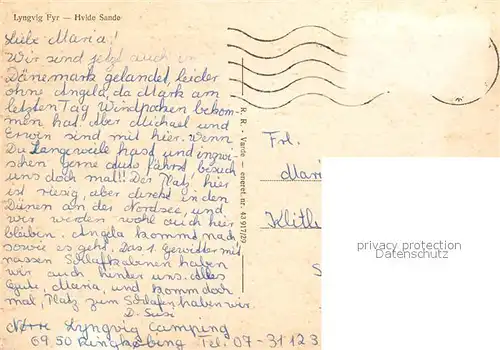 Lyngvig Fyr — Hvide Sande
Liebe Maria!
Wir sind jetzt auch in
Dänemark gelandet, leider
ohne Angela, da Mark am
letzten Tag Windpocken bekom-
men hat. Aber Michael und
Erwin sind mit hier. Wenn
Du Langeweile hast und inzwi-
schen gerne Auto fährst, besuch
uns doch mal!! Der Platz hier
ist riesig, aber direkt in den
Dünen an der Nordsee, und
wir werden wohl auch hier
bleiben. Angela kommt nach
sowie es geht. Das 1. Gewitter mit
nassen Schlafkabinen haben
wir auch hinter uns. Alles
Gute, Maria, und komm doch
mal, Platz zum Schlafen haben wir.
D. Susi
Nørre Lyngvig Camping
6950 Ringkøbing Tel. 07-31 12 3
R. R. - Varde — eneret. nr. 43 917/29
Frl.
Mari
Klitli
S
privacy protection
Datenschutz